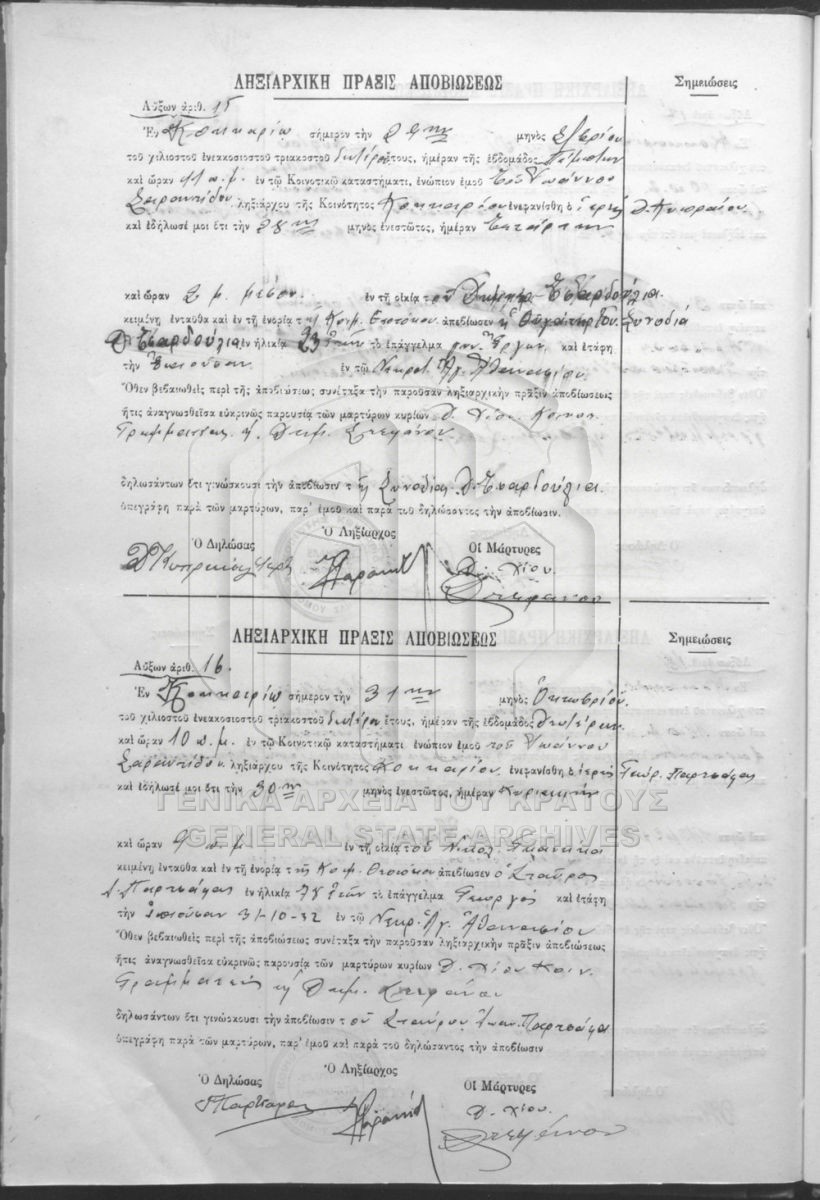 ΛΗΞΙΑΡΧΙΚΗ ΠΡΑΞΙΣ ΑΠΟΒΙΩΣΕΩΣ
Σημειώσεις
Αὔξων ἀριθ. 15
Ἐν Κοκκαρίῳ σήμερον τὴν 29ην μηνὸς 7βρίου
τοῦ χιλιοστοῦ ἐνεακοσιοστοῦ τριακοστοῦ δευτέρου ἔτους, ἡμέραν τῆς ἑβδομάδος Πέμπτην
καὶ ὥραν 11 π.μ. ἐν τῷ Κοινοτικῷ καταστήματι, ἐνώπιον ἐμοῦ τοῦ Ἰωάννου
ληξιάρχου τῆς Κοινότητος Κοκκαρίου ἐνεφανίσθη ὁ ἱερεὺς Δ. Κυπραίου
καὶ ἐδήλωσέ μοι ὅτι τὴν 28ην μηνὸς ἐνεστῶτος, ἡμέραν Τετάρτην
καὶ ὥραν 2 μ. μεσον. ἐν τῇ οἰκίᾳ τοῦ Δημητρ. Τσαρδούλια
κειμένῃ ἐνταῦθα καὶ ἐν τῇ ἐνορίᾳ τῆς Κοιμ. Θεοτόκου ἀπεβίωσεν ἡ θυγάτηρ του Συνοδιά
Δ. Τσαρδούλια ἐν ἡλικίᾳ 23 ἐτῶν τὸ ἐπάγγελμα καὶ ἐτάφη
τὴν Ἐπιοῦσαν ἐν τῷ Νεκροτ. Ἁγ. Ἀθανασίου
Ὅθεν βεβαιωθεὶς περὶ τῆς ἀποβιώσεως συνέταξα τὴν παροῦσαν ληξιαρχικὴν πρᾶξιν ἀποβιώσεως
ἥτις ἀναγνωσθεῖσα εὐκρινῶς παρουσίᾳ τῶν μαρτύρων κυρίων Δ. Χίου Κοινοτ.
Γραμματέως ἢ Δημ. Στεφάνου
δηλωσάντων ὅτι γινώσκουσι τὴν ἀποβίωσιν τῆς Συνοδιᾶς Δ. Τσαρδούλια
ὑπεγράφη παρὰ τῶν μαρτύρων, παρ' ἐμοῦ καὶ παρὰ τοῦ δηλώσαντος τὴν ἀποβίωσιν.
Ὁ Δηλώσας
Ὁ Ληξίαρχος
Οἱ Μάρτυρες
Δ. Χίου
Στεφάνου
ΛΗΞΙΑΡΧΙΚΗ ΠΡΑΞΙΣ ΑΠΟΒΙΩΣΕΩΣ
Σημειώσεις
Αὔξων ἀριθ. 16.
Ἐν Κοκκαρίῳ σήμερον τὴν 31ην μηνὸς Ὀκτωβρίου
τοῦ χιλιοστοῦ ἐνεακοσιοστοῦ τριακοστοῦ δευτέρου ἔτους, ἡμέραν τῆς ἑβδομάδος Δευτέραν
καὶ ὥραν 10 π.μ. ἐν τῷ Κοινοτικῷ καταστήματι ἐνώπιον ἐμοῦ τοῦ Ἰωάννου
Σαραντίδου ληξιάρχου τῆς Κοινότητος Κοκκαρίου ἐνεφανίσθη ὁ ἱερεὺς Γεώρ. Παρτσάφας
καὶ ἐδήλωσέ μοι ὅτι τὴν 30ην μηνὸς ἐνεστῶτος, ἡμέραν Κυριακὴν
ΓΕΝΙΚΑ ΑΡΧΕΙΑ ΤΟΥ ΚΡΑΤΟΥΣ
GENERAL STATE ARCHIVES
καὶ ὥραν 9 π.μ ἐν τῇ οἰκίᾳ τοῦ Νικολ.
κειμένῃ ἐνταῦθα καὶ ἐν τῇ ἐνορίᾳ τῆς Κοιμ. Θεοτόκου ἀπεβίωσεν ὁ Σταῦρος
Ἰ. Παρτσάφας ἐν ἡλικίᾳ 78 ἐτῶν τὸ ἐπάγγελμα Γεωργὸς καὶ ἐτάφη
τὴν Ἐπιοῦσαν 31-10-32 ἐν τῷ Νεκρ. Ἁγ. Ἀθανασίου
Ὅθεν βεβαιωθεὶς περὶ τῆς ἀποβιώσεως συνέταξα τὴν παροῦσαν ληξιαρχικὴν πρᾶξιν ἀποβιώσεως
ἥτις ἀναγνωσθεῖσα εὐκρινῶς παρουσίᾳ τῶν μαρτύρων κυρίων Δ. Χίου Κοιν.
Γραμματεὺς ἢ Δημ. Στεφάνου
δηλωσάντων ὅτι γινώσκουσι τὴν ἀποβίωσιν τοῦ Σταύρου Ἰωαν. Παρτσάφα
ὑπεγράφη παρὰ τῶν μαρτύρων, παρ' ἐμοῦ καὶ παρὰ τοῦ δηλώσαντος τὴν ἀποβίωσιν
Ὁ Δηλώσας
Ὁ Ληξίαρχος
Οἱ Μάρτυρες
Δ. Χίου
Στεφάνου